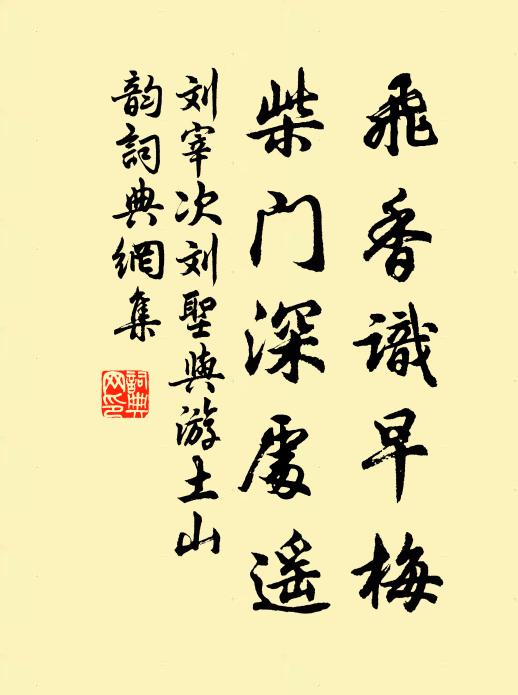 飛香識早梅
柴门深處遥
刘宰次刘聖與游土山
韵詞典網集
詞典
网印